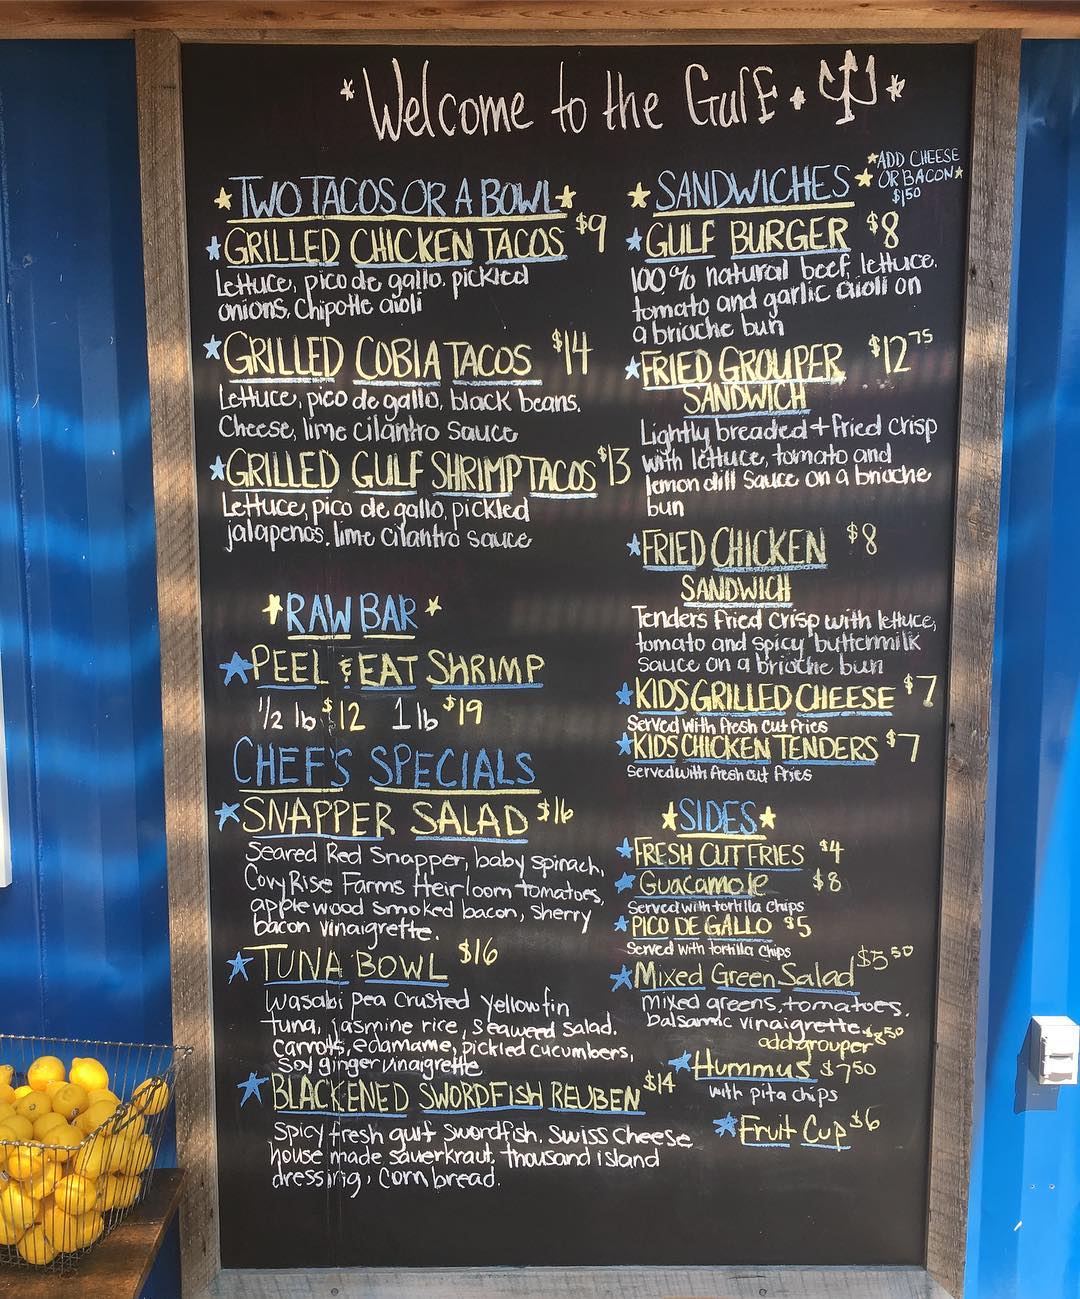 *Welcome to the Gulf.*
TWO TACOS OR A BOWL
GRILLED CHICKEN TACOS $9
Lettuce, pico de gallo, pickled
onions, Chipotle aioli
GRILLED COBIA TACOS $14
Lettuce, pico de gallo, black beans,
Cheese, lime cilantro sauce
GRILLED GULF SHRIMP TACOS $13
Lettuce, pico de gallo, pickled
jalapenos, lime cilantro sauce
RAW BAR
PEEL & EAT SHRIMP
1/2 lb $12 1 lb $19
CHEF'S SPECIALS
SNAPPER SALAD $16
Seared Red Snapper, baby spinach,
Covy Rise Farms Heirloom tomatoes,
apple wood smoked bacon, sherry
bacon vinaigrette.
TUNA BOWL $16
Wasabi pea Crusted Yellowfin
tuna, jasmine rice, seaweed salad,
carrots, edamame, pickled cucumbers,
Soy ginger vinaigrette
BLACKENED SWORDFISH REUBEN $14
Spicy fresh gulf swordfish, Swiss Cheese
house made sauerkraut, thousand island
dressing, Corn bread.
SANDWICHES
*ADD CHEESE
OR BACON*
$1.50
GULF BURGER $8
100% natural beef, lettuce,
tomato and garlic aioli on
a brioche bun
FRIED GROUPER $12.75
SANDWICH
Lightly breaded + fried crisp
with lettuce, tomato and
lemon dill sauce on a brioche
bun
FRIED CHICKEN $8
SANDWICH
Tenders fried crisp with lettuce,
tomato and spicy buttermilk
Sauce on a brioche bun
KIDS GRILLED CHEESE $7
Served with fresh cut fries
KIDS CHICKEN TENDERS $7
Served with fresh cut fries
SIDES
FRESH CUT FRIES $4
Guacamole $8
Served with tortilla Chips
PICO DE GALLO $5
Served with tortilla Chips
Mixed Green Salad $5.50
Mixed greens, tomatoes,
balsamic vinaigrette
add grouper $8.50
Hummus $7.50
with pita chips
Fruit Cup $6